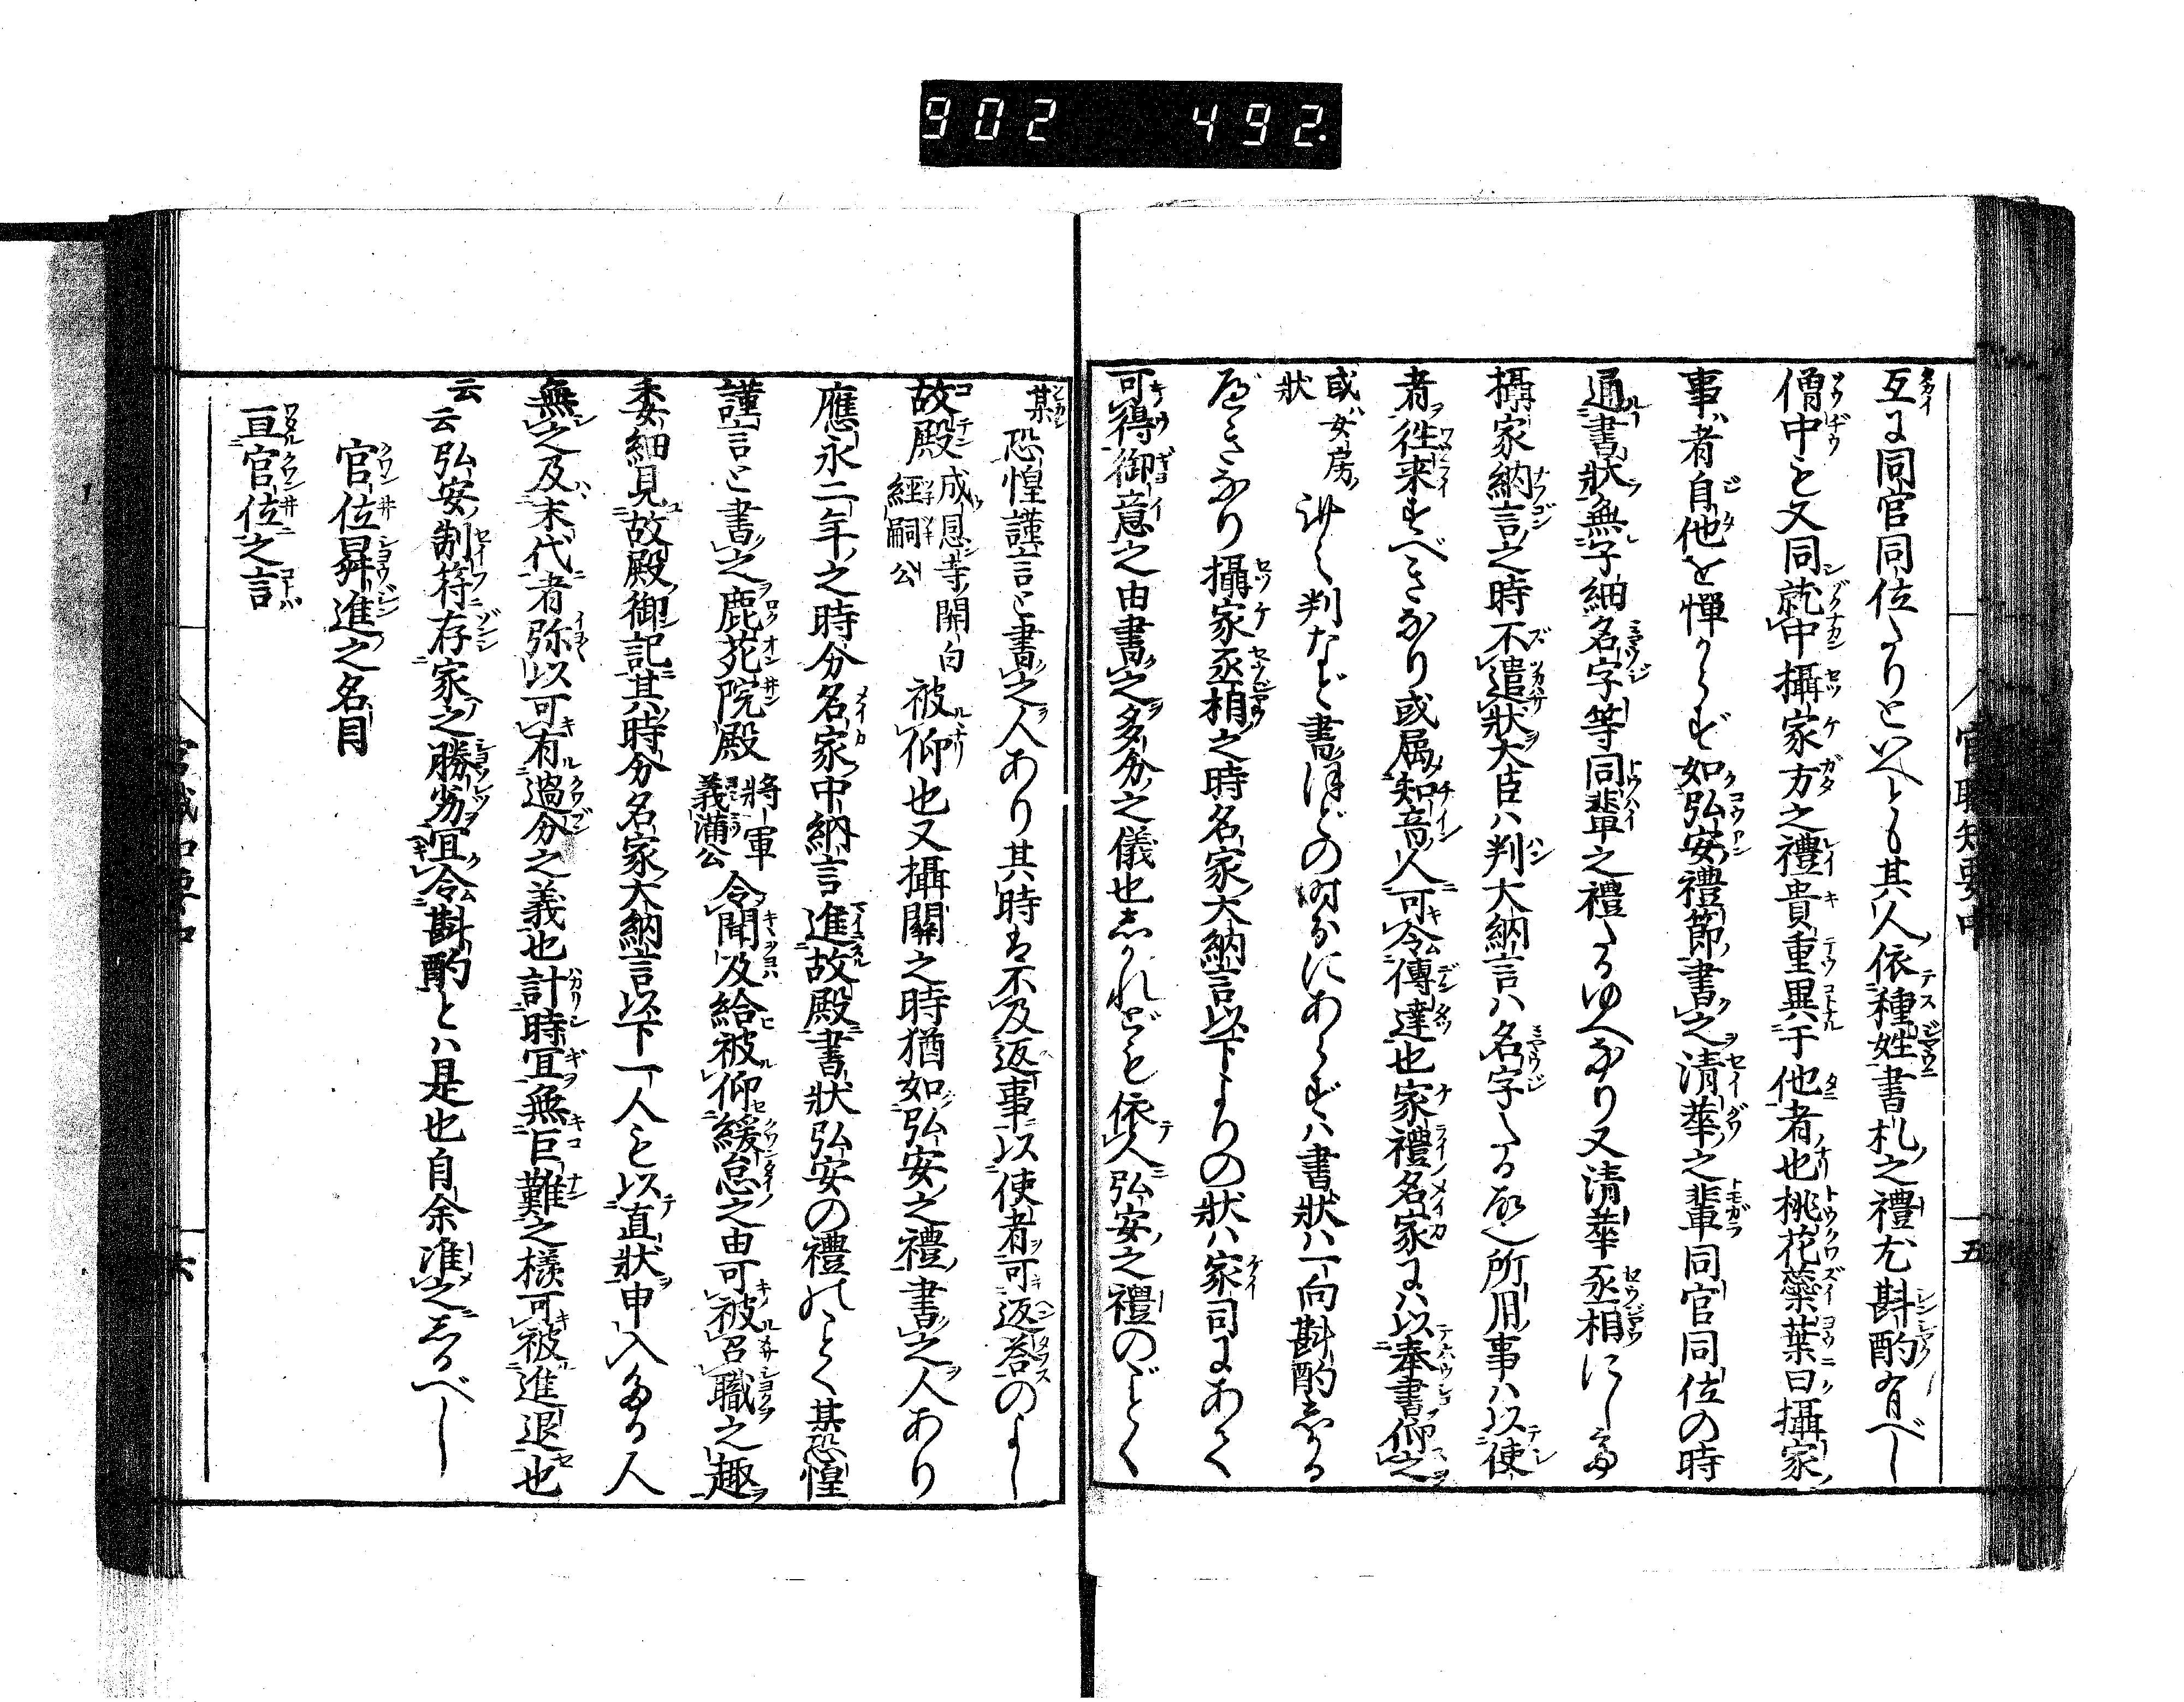 902 492.
互に同官同位たりといへとも其人依種姓書札之禮尤斟酌有べし
僧中も又同就中攝家方之禮貴重異于他者也桃花蘂葉曰攝家
事者自他を憚からず如弘安禮節書之清華之輩同官同位の時
通書狀無子細名字等同輩之禮たるゆへなり又清華丞相にして
攝家納言之時不遣狀大臣ハ判大納言ハ名字たる故所用事ハ以使
者往来すべきなり或属知音人可令傳達也家禮名家にハ以奉書仰之
或ハ女房狀
判など書ほどの時分にあらずハ書狀ハ一向斟酌しかる
べきなり攝家丞相之時名家大納言以下よりの狀ハ家司にあてて
可得御意之由書之多分之儀也しかれども依人弘安之禮のごとく
某恐惶謹言と書之人あり其時は不及返事以使者可返答のよし
故殿成恩寺関白経嗣公被仰也又攝關之時猶如弘安之禮書之人あり
應永二年之時分名家中納言進故殿書狀弘安の禮のことく某恐惶
謹言と書之鹿苑院殿將軍義満公令聞及給被仰緩怠之由可被召職之趣
委細見故殿御記其時分名家大納言以下一人も以直狀申入たる人
無之及末代者弥以可有過分之義也計時宜無巨難之様可被進退也
云云弘安制符存家之勝劣宜令斟酌とハ是也自余准之しるべし
官位昇進之名目
亘官位之言
官職知要中
五
六